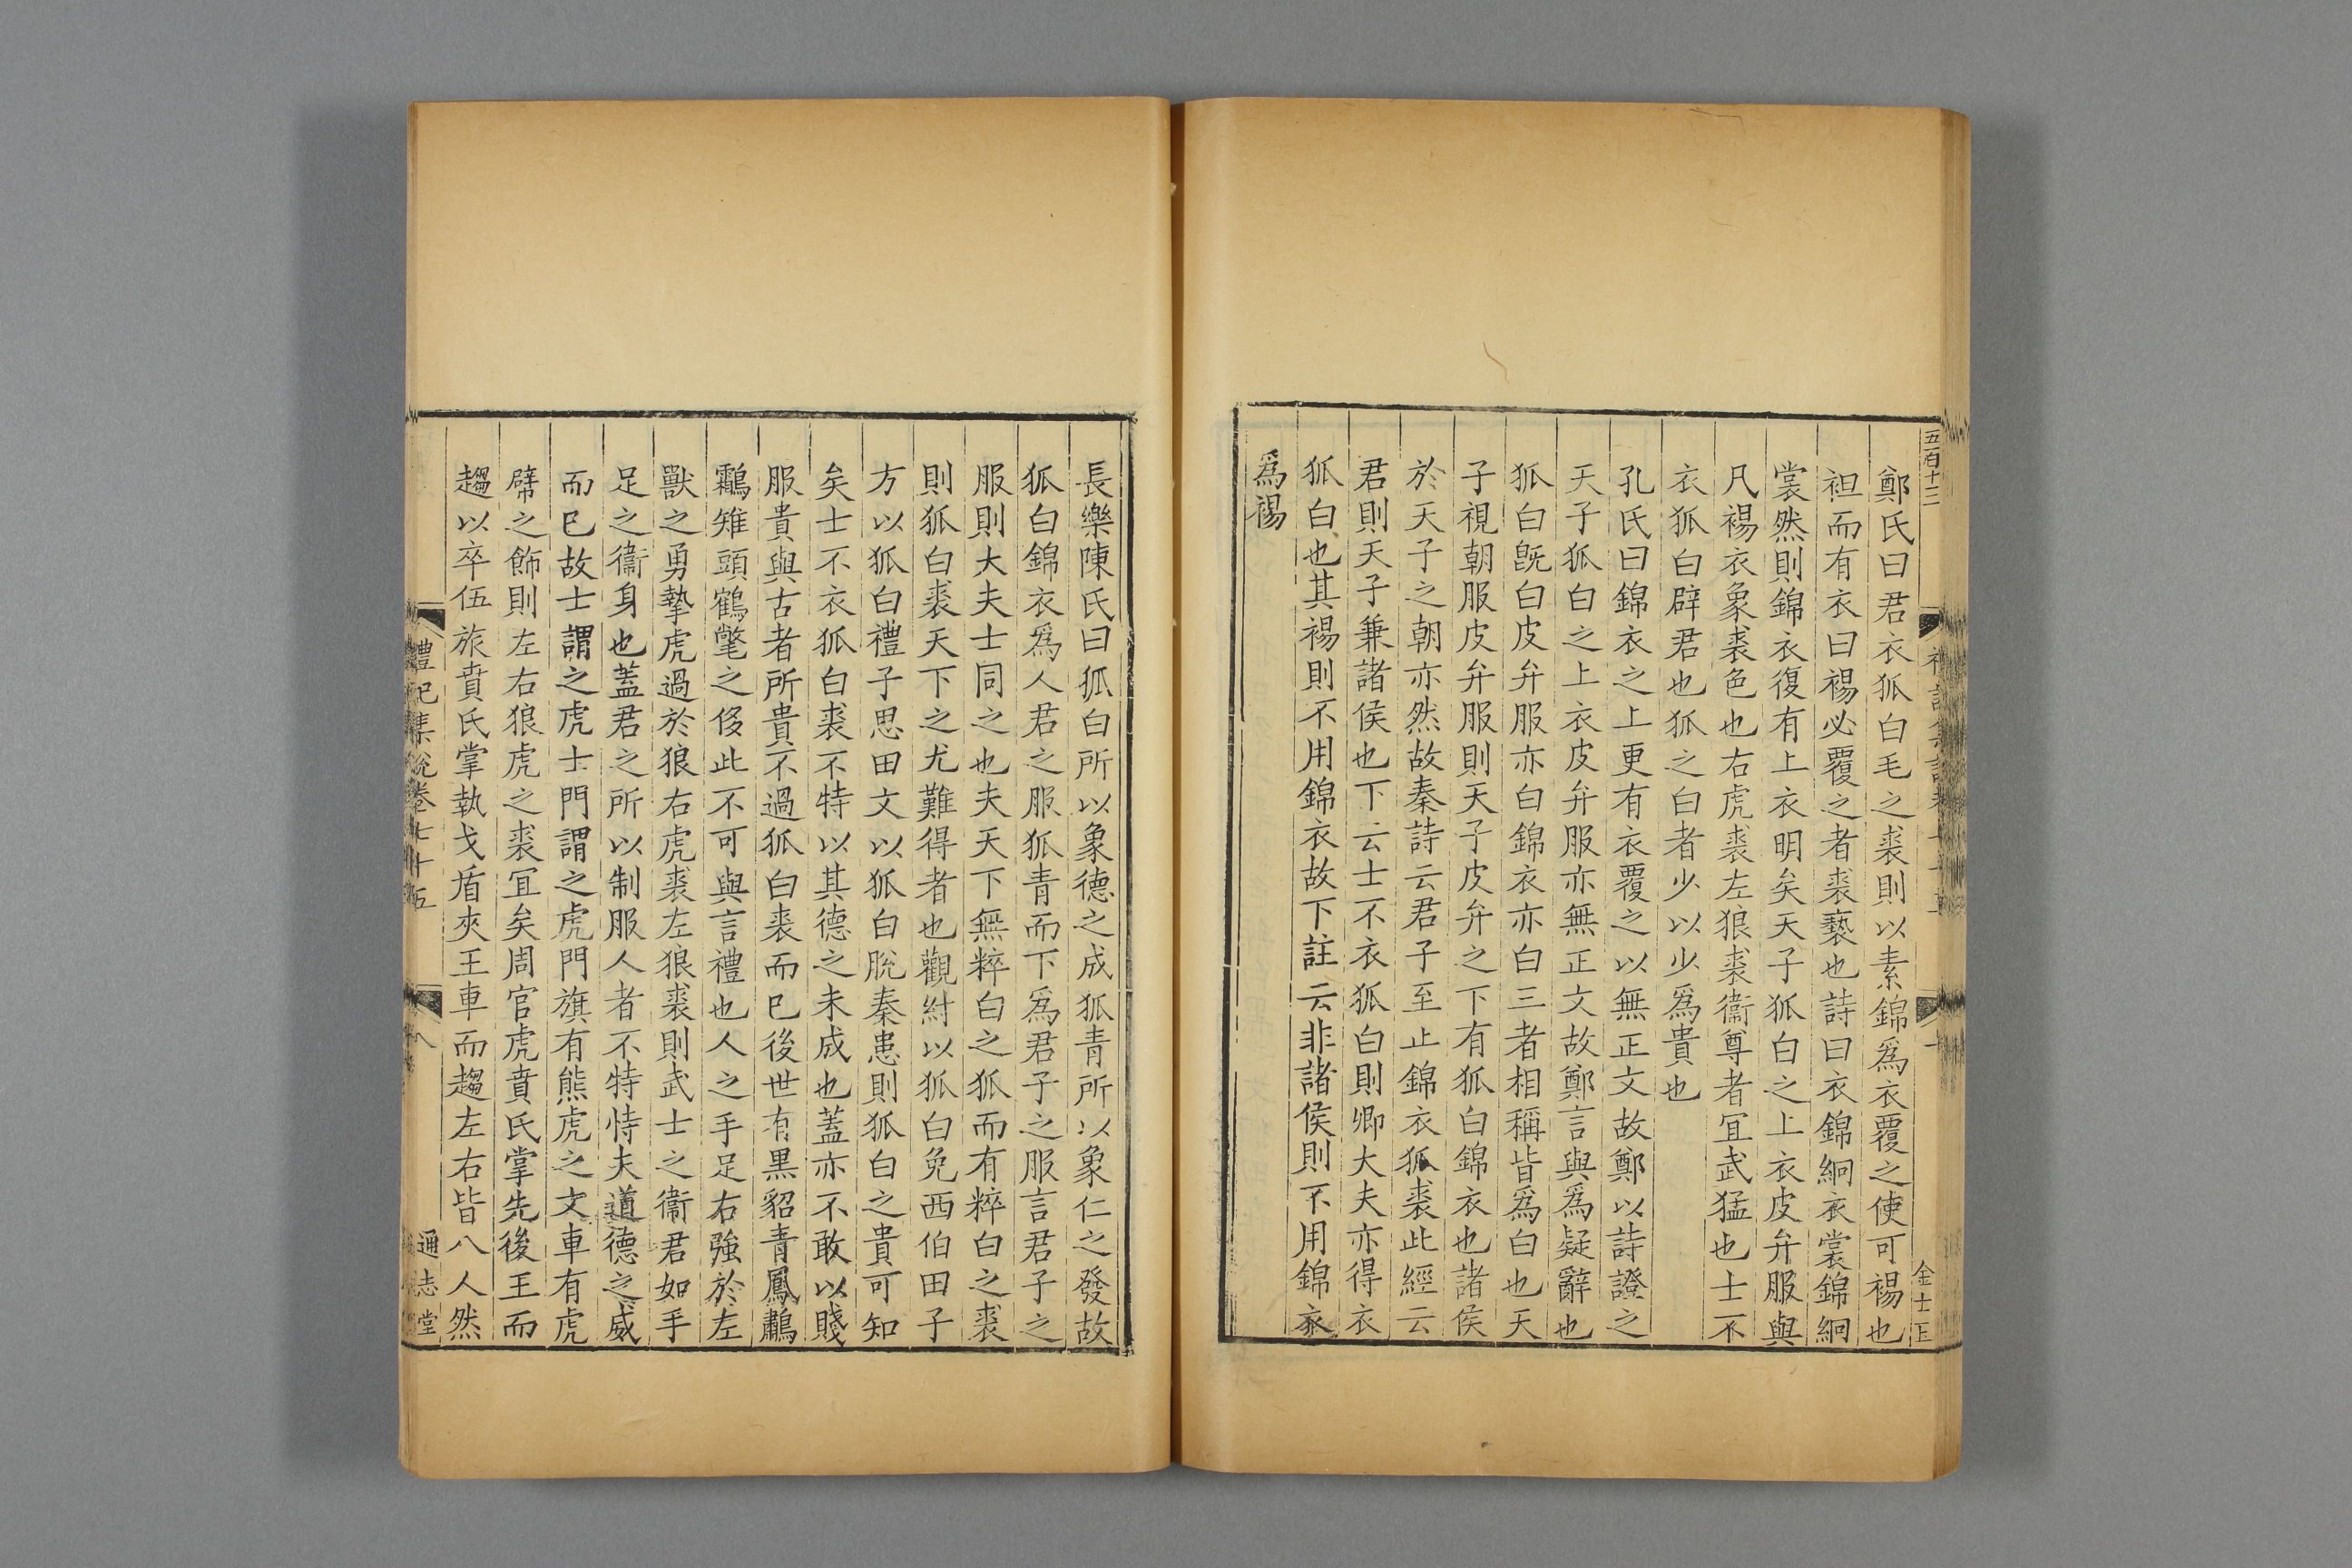 五百十三
鄭氏曰君衣狐白毛之裘則以素錦爲衣覆之使可裼也
袒而有衣曰裼必覆之者裘褻也詩曰衣錦絅衣裳錦絅
裳然則錦衣復有上衣明矣天子狐白之上衣皮弁服與
凡裼衣象裘色也右虎裘左狼裘衞尊者宜武猛也士不
衣狐白辟君也狐之白者少以少爲貴也
孔氏曰錦衣之上更有衣覆之以無正文故鄭以詩證之
天子狐白之上衣皮弁服亦無正文故鄭言與爲疑辭也
狐白旣白皮弁服亦白錦衣亦白三者相稱皆爲白也天
子視朝服皮弁服則天子皮弁之下有狐白錦衣也諸侯
於天子之朝亦然故秦詩云君子至止錦衣狐裘此經云
君則天子兼諸侯也下云士不衣狐白則卿大夫亦得衣
狐白也其裼則不用錦衣故下註云非諸侯則不用錦衣
爲裼
長樂陳氏曰狐白所以象德之成狐青所以象仁之發故
狐白錦衣爲人君之服狐青而下爲君子之服言君子之
服則大夫士同之也夫天下無粹白之狐而有粹白之裘
則狐白裘天下之尤難得者也觀紂以狐白免西伯田子
方以狐白禮子思田文以狐白脫秦患則狐白之貴可知
矣士不衣狐白裘不特以其德之未成也蓋亦不敢以賤
服貴與古者所貴不過狐白裘而已後世有黑貂青鳳鸘
䨥雉頭鶴氅之侈此不可與言禮也人之手足右強於左
獸之勇摯虎過於狼右虎裘左狼裘則武士之衞君如手
足之衞身也蓋君之所以制服人者不特恃夫道德之威
而已故士謂之虎士門謂之虎門旗有熊虎之文車有虎
幦之飾則左右狼虎之裘宜矣周官虎賁氏掌先後王而
趨以卒伍旅賁氏掌執戈盾夾王車而趨左右皆八人然
禮記集說卷七十五
八
通志堂